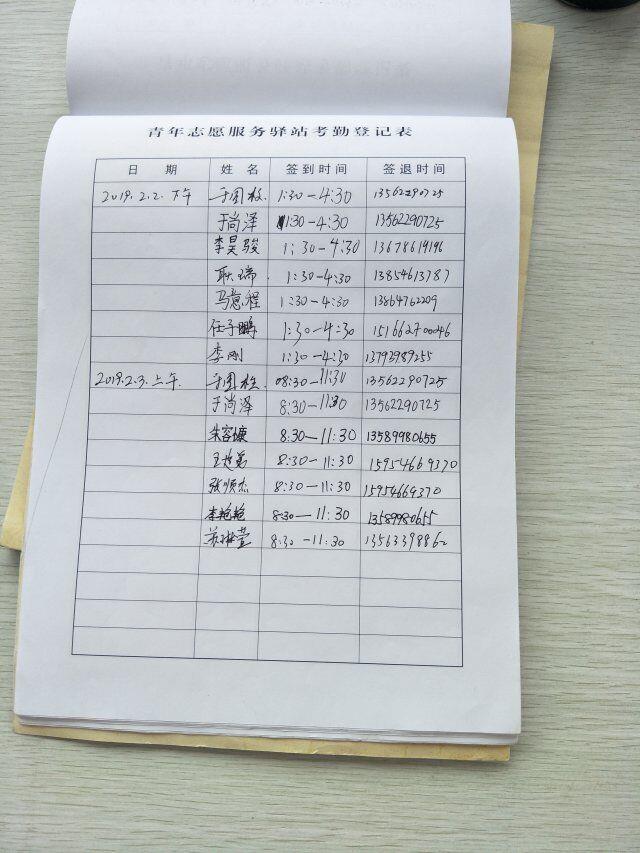 青年志愿服务驿站考勤登记表
日 期 姓 名 签到时间 签退时间
2019.2.2.下午 于国 1:30-4:30 13562290725
于尚泽 1:30-4:30 13562290725
李昊骏 1:30-4:30 13678619196
耿瑞 1:30-4:30 13854613787
马意程 1:30-4:30 13864762209
任子鹏 1:30-4:30 15166270046
李刚 1:30-4:30 13793987255
2019.2.3.上午 于国 08:30-11:30 13562290725
于尚泽 8:30-11:30 13562290725
朱容慷 8:30-11:30 13589980655
王 8:30-11:30 15954669370
张顺杰 8:30-11:30 15954669370
李艳艳 8:30-11:30 13589980655
苏 莹 8:30-11:30 13563398862